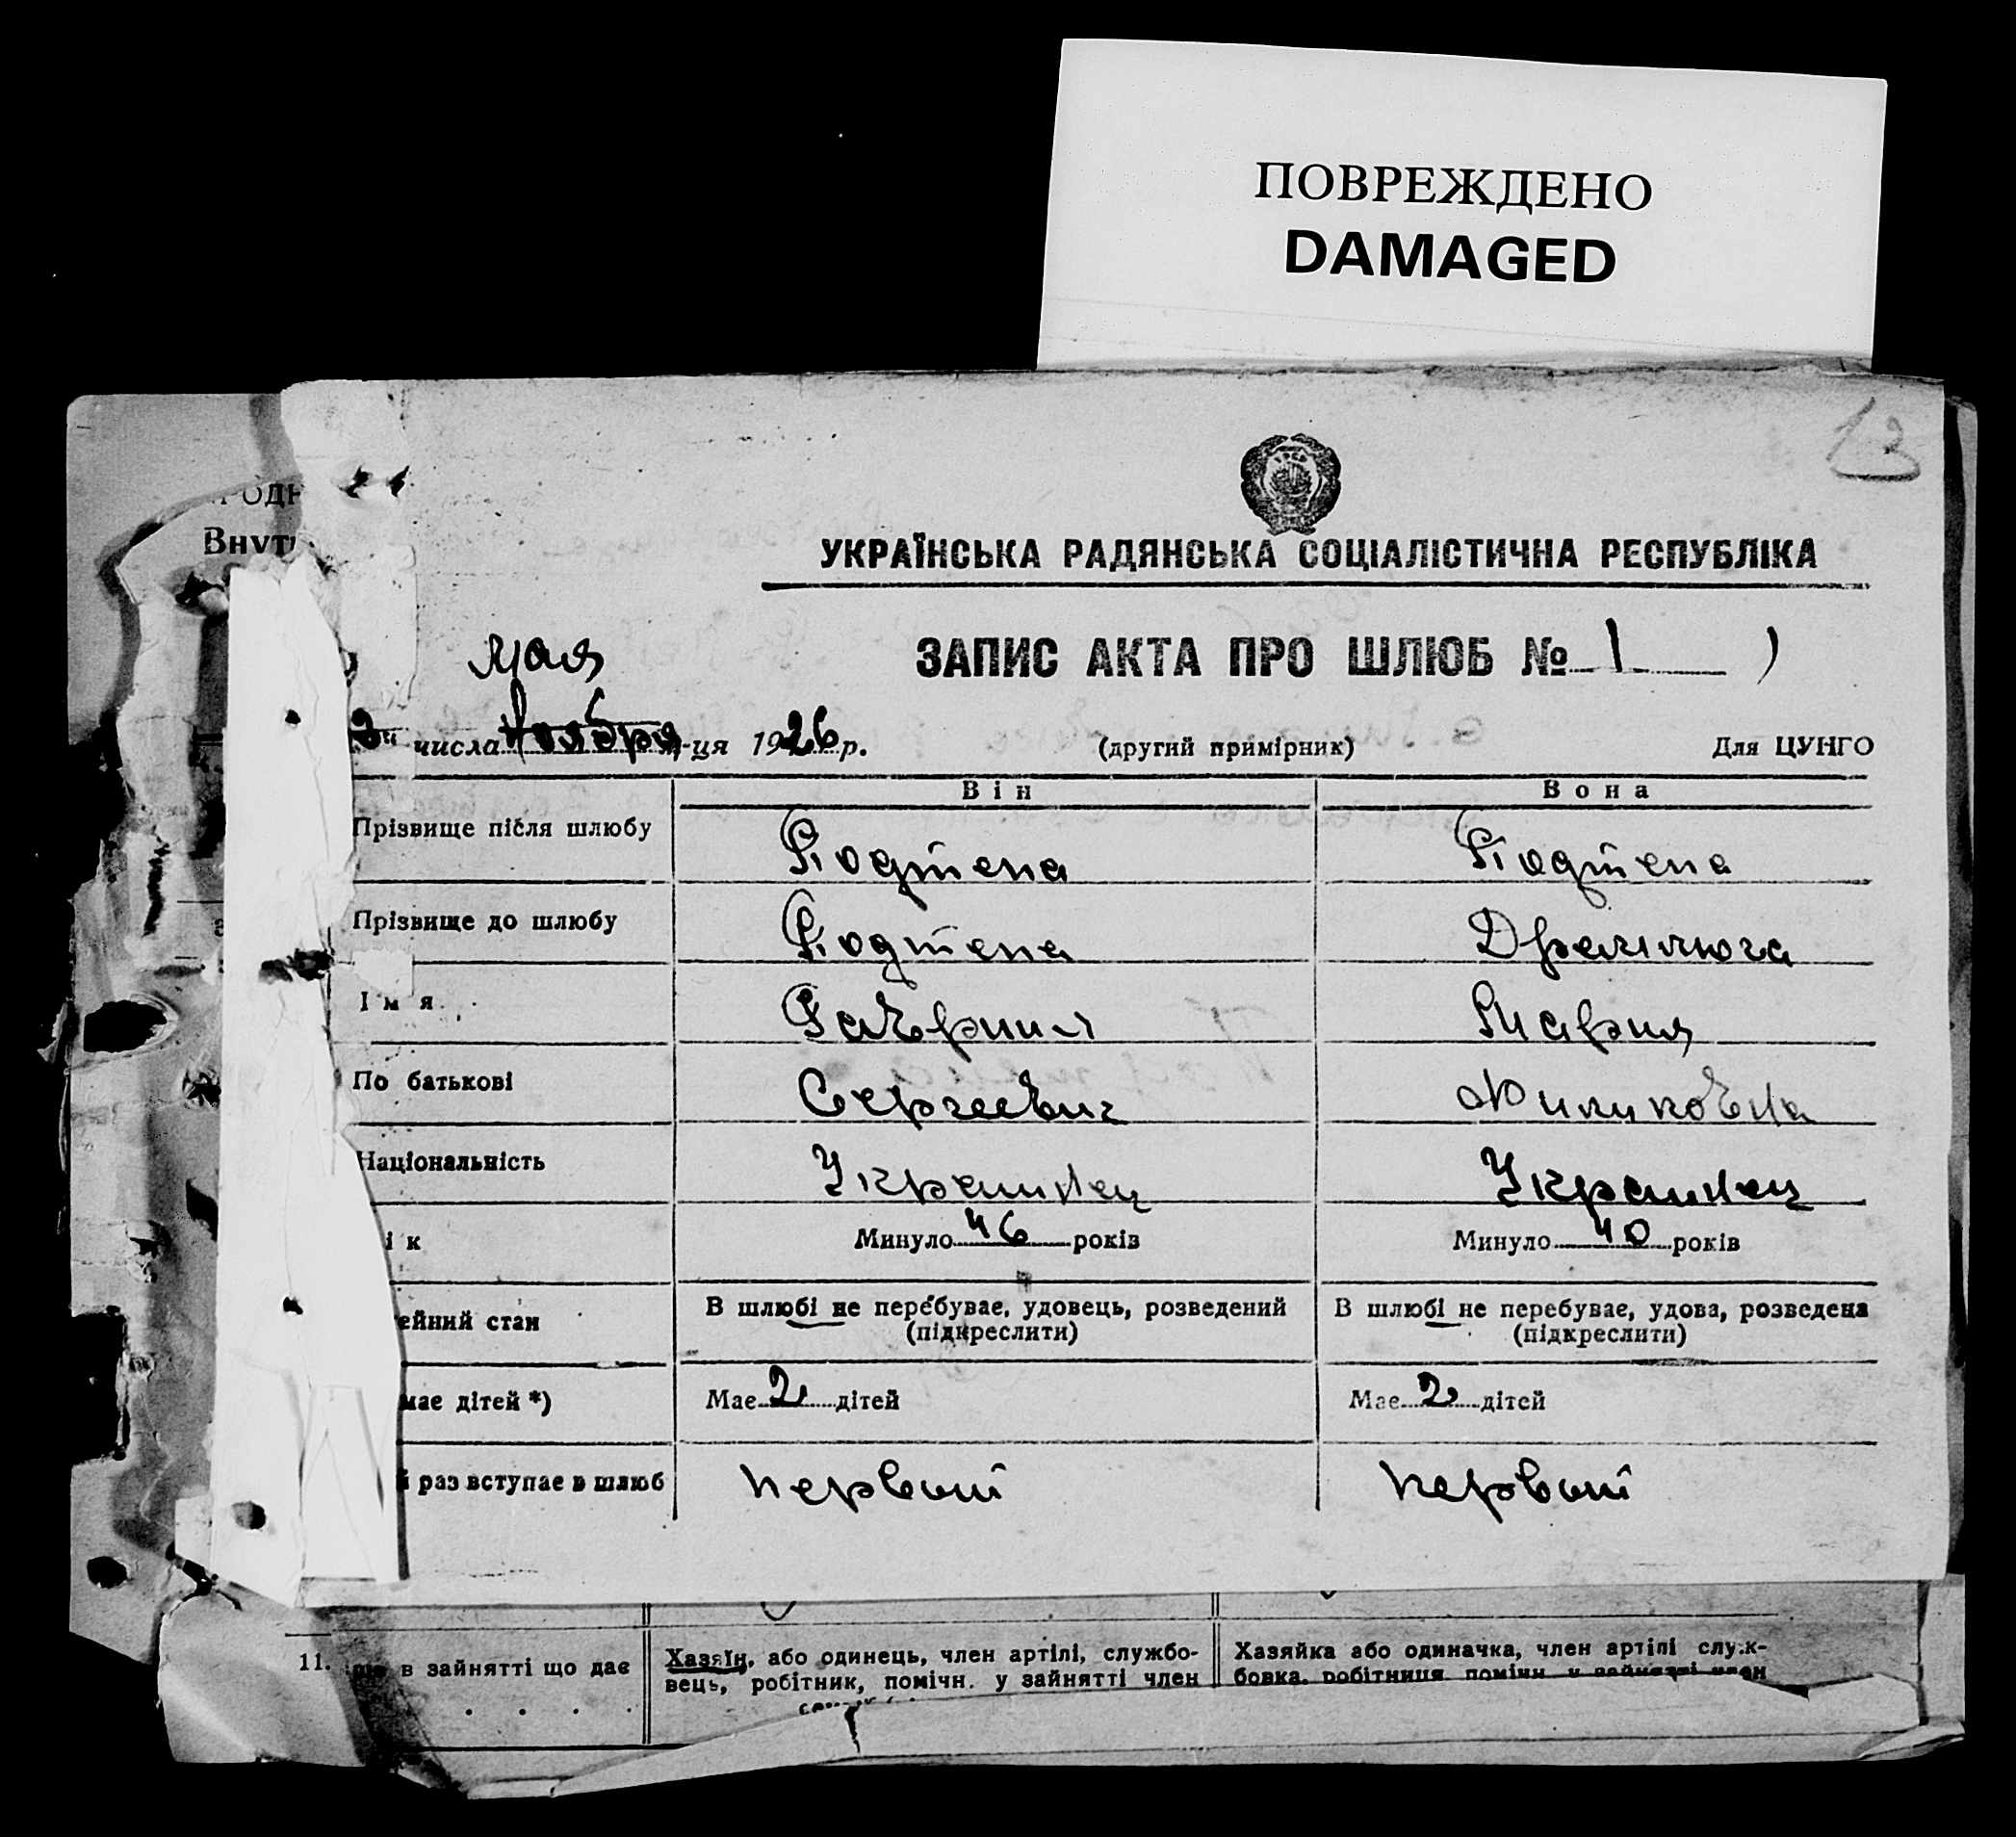 ПОВРЕЖДЕНО
DAMAGED
13
РОДН
Внут
УКРАЇНСЬКА РАДЯНСЬКА СОЦІАЛІСТИЧНА РЕСПУБЛІКА
ЗАПИС АКТА ПРО ШЛЮБ № 1
мая
числа ноября м-ця 1926 р. (другий примірник) Для ЦУНГО
Він Вона
Прізвище після шлюбу Подтепа Подтепа
Прізвище до шлюбу Подтепа
Імя Гавриил Мария
По батькові Сергеевич Филиповна
Національність Украинец Украинец
ік Минуло 46 років Минуло 40 років
ейний стан В шлюбі не перебуває, удовець, розведений В шлюбі не перебуває, удова, розведена
(підкреслити) (підкреслити)
має дітей *) Має 2 дітей Має 2 дітей
й раз вступає в шлюб первый первый
11. в зайнятті що дає Хазяїн, або одинець, член артілі, службо- Хазяйка або одиначка, член артілі служ-
вець, робітник, помічн. у зайнятті член бовка, робітниця помічн. у зайнятті член